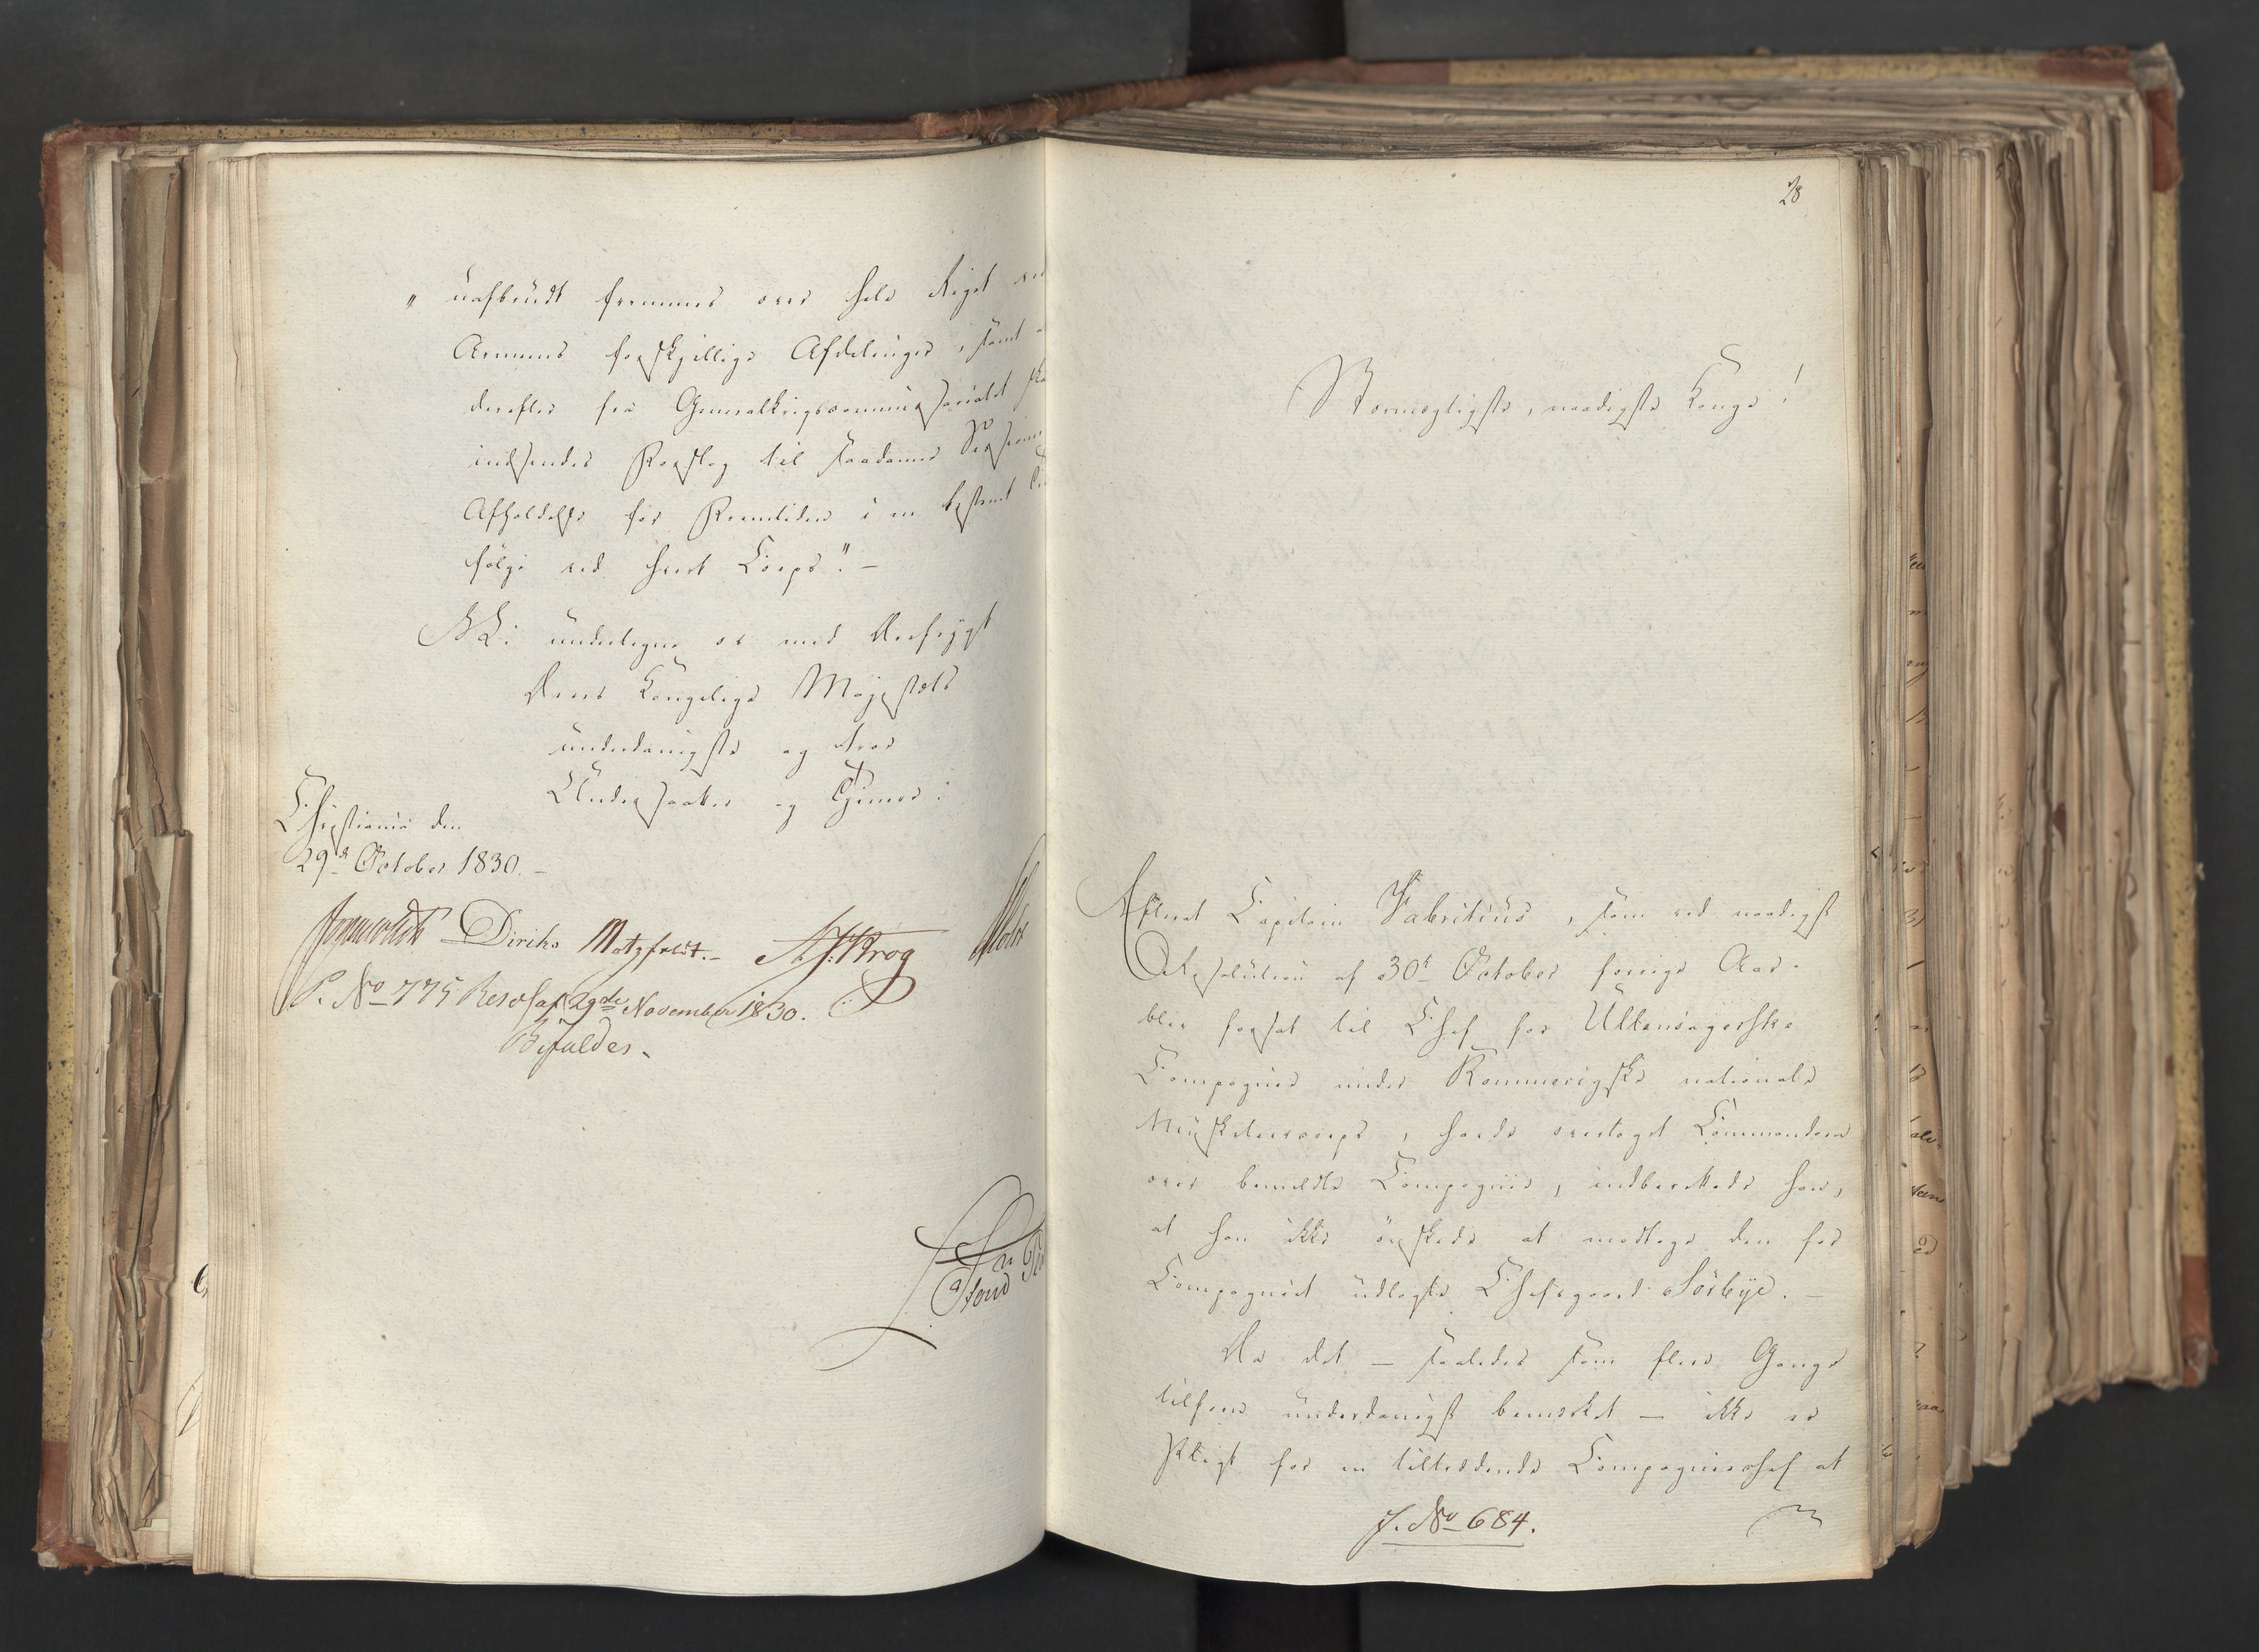 " uafbrudt fremmes over hele Riget ved
Armeens forskjellige Afdelinger, samt
derefter fra Generalkrigscommissariatet
indsendes Forslag til saadanne Sessioners
Afholdelse for Fremtiden i en bestemt
følge ved hvert Corps". –
Vi undertegne os med Ærefrygt
Deres Kongelige Majestæts
underdanigste og troe
Undersaatter og Tjenere:
Christiania den
29de October 1830. –
Sommerhielm Diriks Motzfeldt. – N. J. Krog Holst
P. No 775 Resol. af 29de November 1830.
Bifaldes.
28
Stormægtigste, naadigste Konge!
Efterat Capitain Fabritius, som ved naadigst
Resolution af 30t October forrige Aar
blev forsat til Chef for Ullensagerske
Compagnie under Rommerigske nationale
Musketeercorps, havde overtaget Commandoen
over bemeldte Compagnie, indberettede han,
at han ikke ønskede at modtage den for
Compagniet udlagte Chefsgaard Sørbye. –
Da det – saaledes som flere Gange
tilforn underdanigst bemærket – ikke er
Pligt for en tiltrædende Compagniechef at
J. No 684.